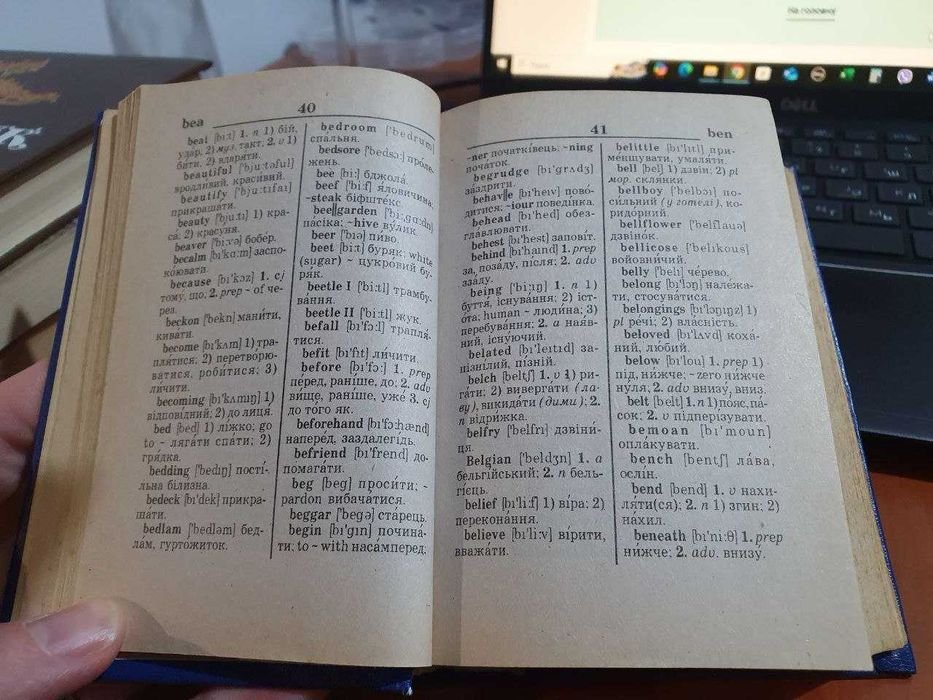 На головну
DELL
bea
40
beat [bi:t] 1. n 1) бій,
удар; 2) муз. такт; 2. v 1)
бити, 2) вдаряти.
beautiful ['bju:təful]
вродливий, красивий.
beautify ['bju:tifai]
прикрашати.
beauty [bju:ti] 1) кра-
са; 2) красуня.
beaver [bi:və] бобер.
becalm [bɪ'kɑ:m] заспо-
коювати.
because [bɪ'kɔz] 1. cj
тому, що; 2. prep ~ of че-
рез.
beckon ['bekn] мани́ти,
кивати.
become [bɪ'kʌm] 1) тра-
пля́тися; 2) перетворю-
ватися, роби́тися; 3)
ли́чити.
becoming [bɪ'kʌmɪŋ] 1)
відпові́дний; 2) до лиця.
bed [bed] 1) лі́жко; go
to ~ ляга́ти спа́ти; 2)
гря́дка.
bedding ['bedɪŋ] пості́-
льна білизна.
bedeck [bɪ'dek] прикра-
ша́ти.
bedlam ['bedləm] бед-
ла́м, гурто́житок.
bedroom ['bedrum]
спальня.
bedsore ['bedsɔ:] про́ле-
жень.
bee [bi:] бджола́.
beef ['bi:f] я́ловичина;
~steak біфште́кс.
bee||garden ['bi:,gɑ:dn]
па́сіка; ~hive ву́лик.
beer ['bɪə] пи́во.
beet [bi:t] буря́к; white
(sugar) ~ цукро́вий бу-
ря́к.
beetle I ['bi:tl] трамбу-
ва́ння.
beetle II ['bi:tl] жук.
befall [bɪ'fɔ:l] трапля́-
тися.
befit [bɪ'fɪt] ли́чити.
before [bɪ'fɔ:] 1. prep
пе́ред, рані́ше, до; 2. adv
ви́ще, рані́ше, уже́ 3. cj
до то́го як.
beforehand [bɪ'fɔ:hænd]
напере́д, заздалегі́дь.
befriend [bɪ'frend] до-
помага́ти.
beg [beg] проси́ти; ~
pardon вибача́тися.
beggar ['begə] ста́рець.
begin [bɪ'gɪn] почина́-
ти, to ~ with насамперед;
41
ben
~ner початкі́вець; ~ning
поча́ток.
begrudge [bɪ'grʌdʒ]
за́здрити.
behav||e [bɪ'heɪv] пово́-
дитися; ~iour поведі́нка.
behead [bɪ'hed] обез-
гла́влювати.
behest [bɪ'hest] запові́т.
behind [bɪ'haɪnd] 1. prep
за, поза́ду, пі́сля; 2. adv
зза́ду.
being ['bi:ɪŋ] 1. n 1)
буття́, існува́ння; 2) іст-
о́та; human ~ люди́на; 3)
перебува́ння; 2. a ная́в-
ний, існу́ючий.
belated [bɪ'leɪtɪd] за-
пізні́лий, пі́зній.
belch [beltʃ] 1. v 1) ри-
га́ти; 2) виверга́ти (ла-
ву), викида́ти (дими); 2.
n відри́жка.
belfry ['belfrɪ] дзвіни́-
ця.
Belgian ['beldʒn] 1. a
бельгі́йський; 2. n бель-
гі́єць.
belief [bɪ'li:f] 1) ві́ра; 2)
перекона́ння.
believe [bɪ'li:v] ві́рити,
вважа́ти.
belittle [bɪ'lɪtl] при-
ме́ншувати, умаля́ти.
bell [bel] 1) дзвін; 2) pl
мор. скля́нки.
bellboy ['belbɔɪ] по-
си́льний (у готелі), ко-
ридо́рний.
bellflower ['belflauə]
дзвіно́к.
bellicose ['belɪkous]
войовни́чий.
belly ['belɪ] че́рево.
belong [bɪ'lɔŋ] нале́жа-
ти, стосува́тися.
belongings [bɪ'lɔŋɪŋz] 1)
pl ре́чі; 2) вла́сність.
beloved [bɪ'lʌvd] коха́-
ний, лю́бий.
below [bɪ'lou] 1. prep 1)
під, ни́жче; ~zero ни́жче
нуля́; 2. adv внизу́, вниз.
belt [belt] 1. n 1) по́яс, па́-
сок; 2. v підпері́зувати.
bemoan [bɪ'moun]
опла́кувати.
bench [bentʃ] ла́ва,
ослі́н.
bend [bend] 1. v нахи-
ля́ти(ся); 2. n 1) згин; 2)
на́хил.
beneath [bɪ'ni:θ] 1. prep
ни́жче; 2. adv. внизу́.